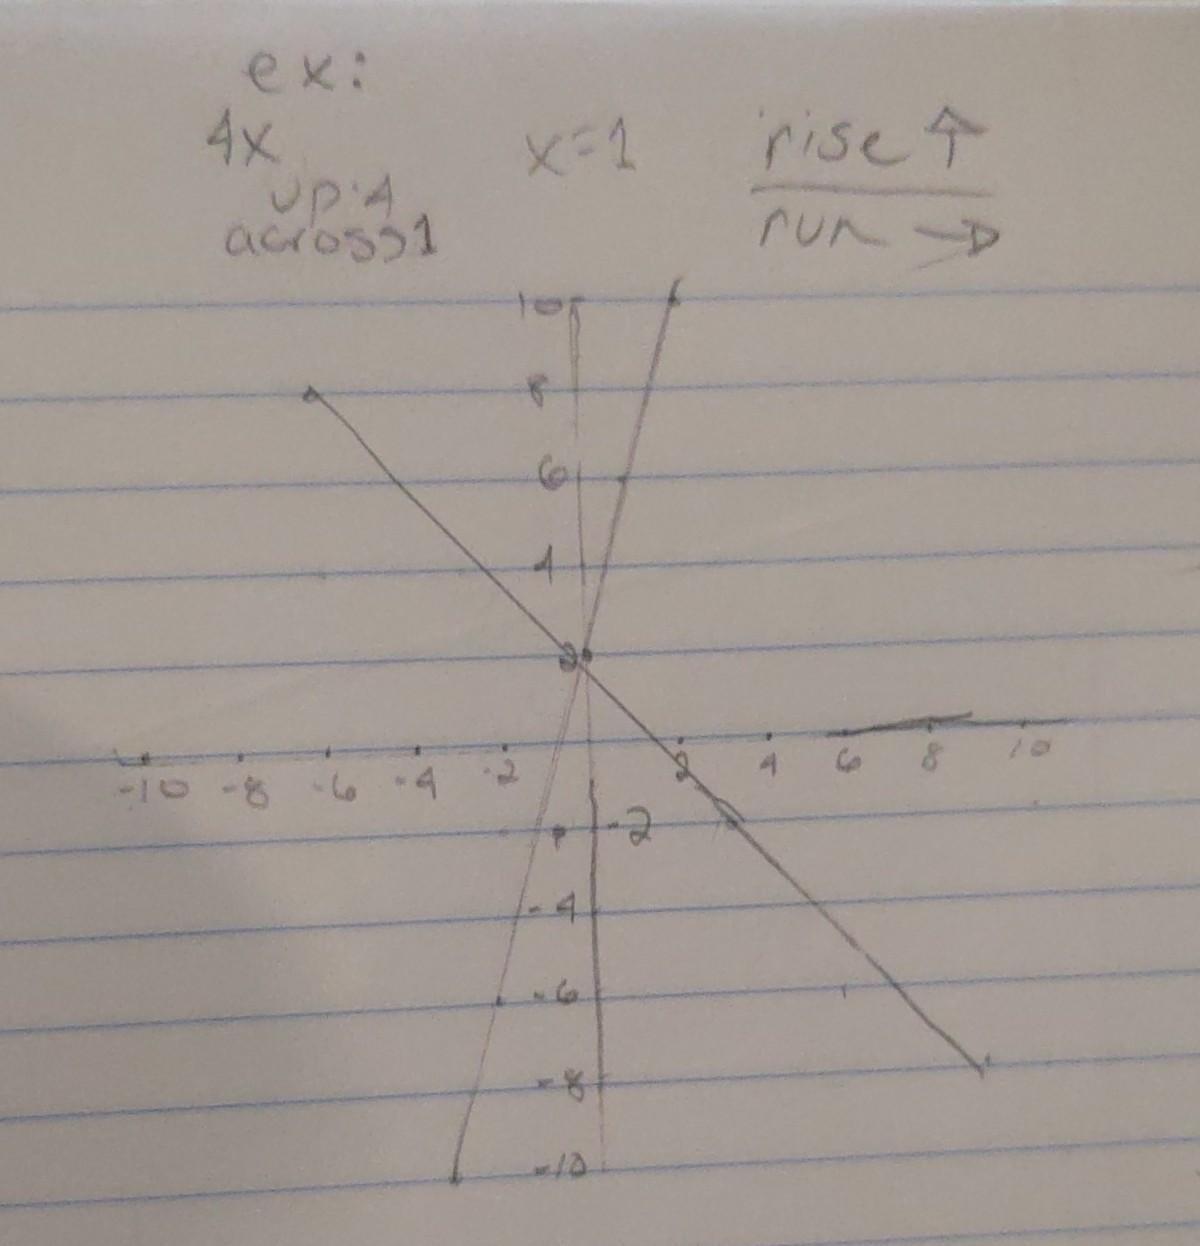 ex:
4x
x=1
rise ↑
up:4
across1
run →
10
8
6
4
2
-10 -8 -6 -4 -2 2 4 6 8 10
-2
-4
-6
-8
-10